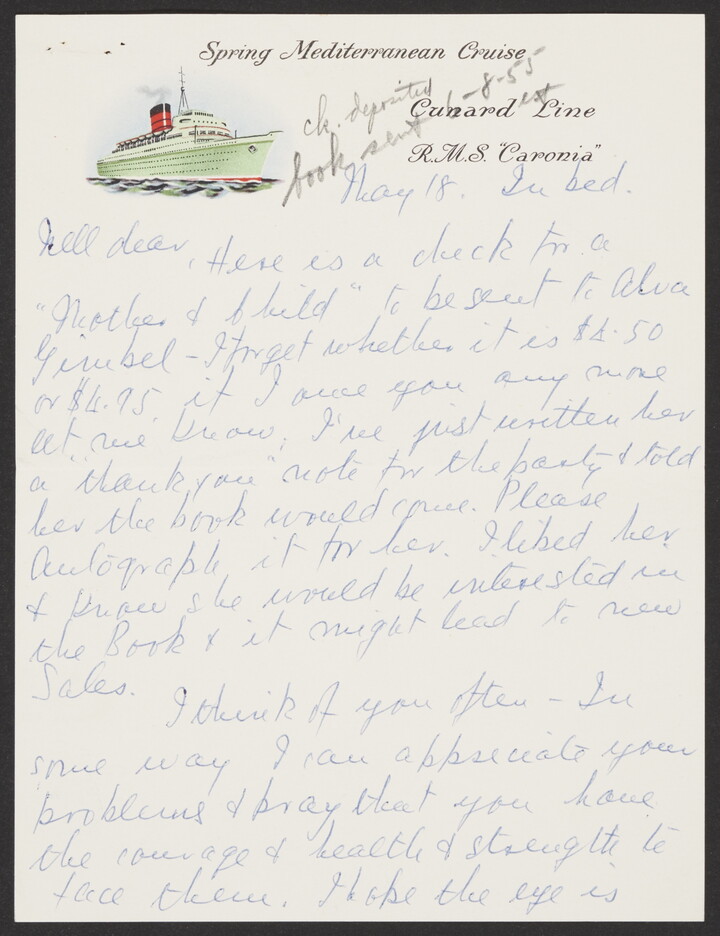 Spring Mediterranean Cruise
Cunard Line
R.M.S. "Caronia"
ck. deposited 6-8-55
book sent est
May 18. In bed.
Nell dear, Here is a check for a
"Mother & Child" to be sent to Alva
Gimbel - I forget whether it is $4.50
or $4.95, if I owe you any more
let me know. I've just written her
a "thank you" note for the party & told
her the book would come. Please
Autograph it for her. I liked her
& know she would be interested in
the Book & it might lead to new
Sales.
I think of you often - In
some way I can appreciate your
problems & pray that you have
the courage & health & strength to
face them. I hope the eye is